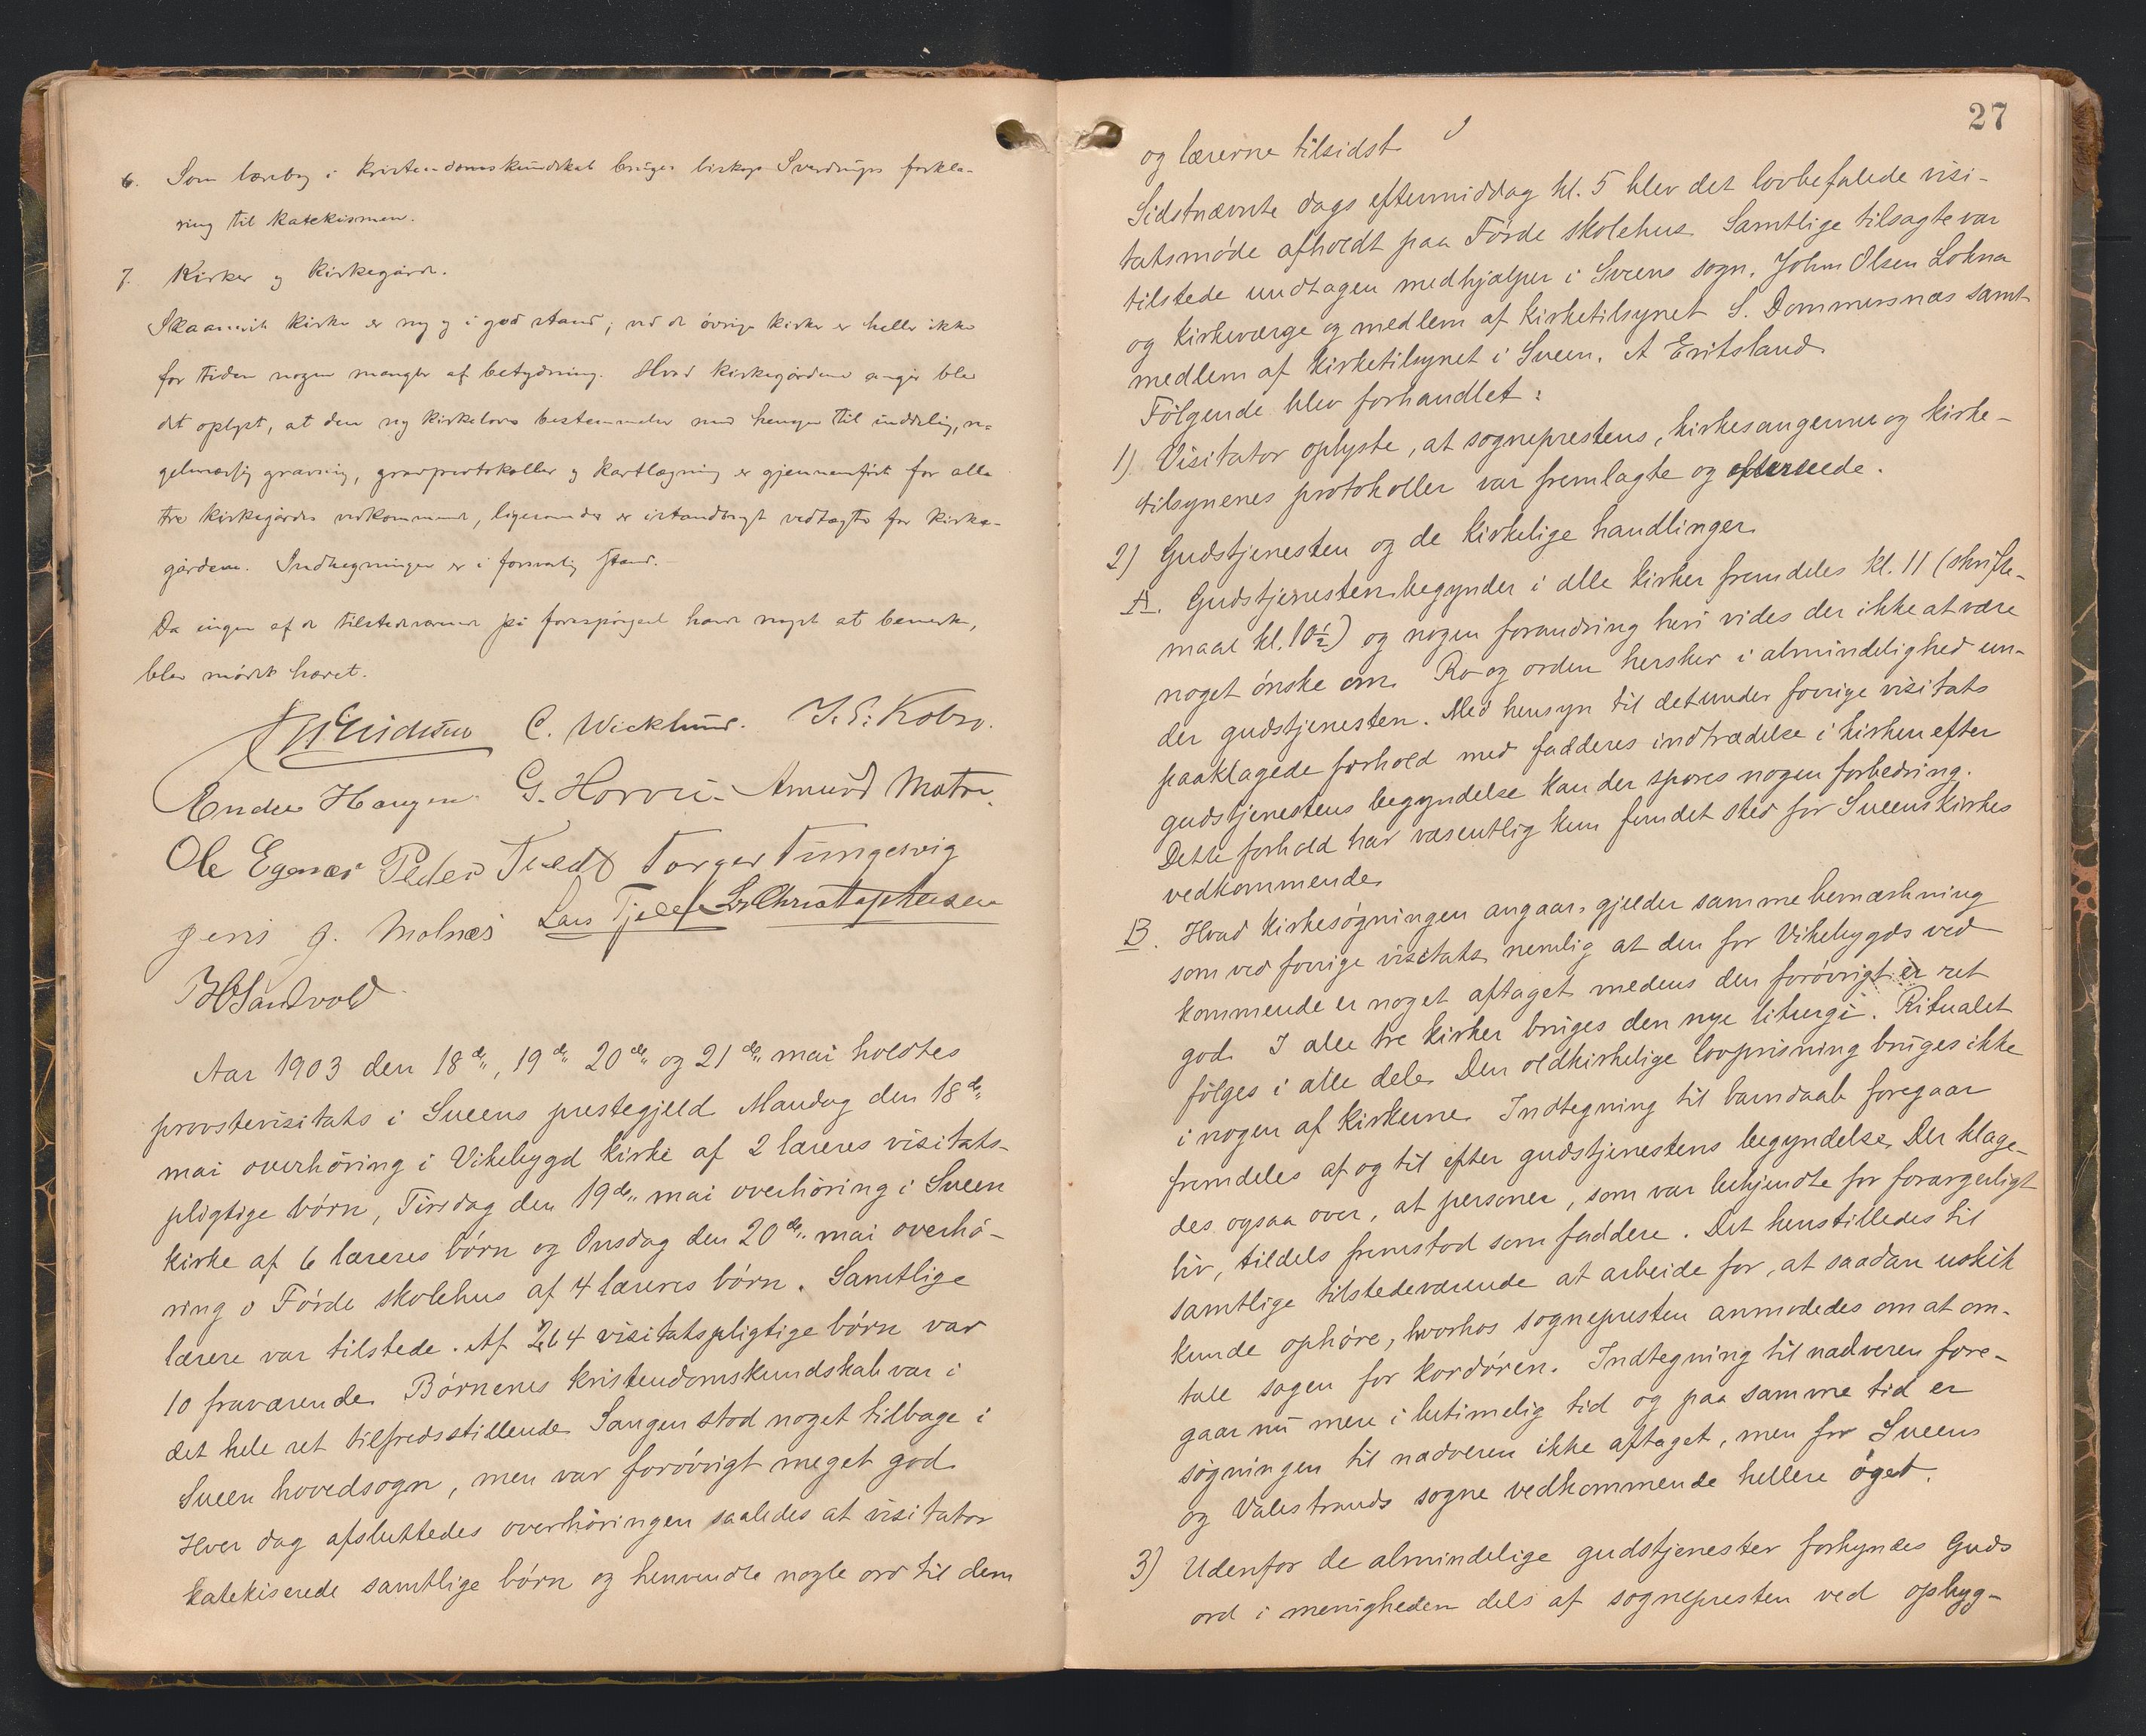 6. Som lærebog i kristendomskundskab bruges biskop Sverdrups forkla-
ring til katekismen.
7. Kirker og kirkegårde.
Skaanevik kirke er ny og i god stand; ved de øvrige kirker er heller ikke
for tiden nogen mangler af betydning. Hvad kirkegårdene angår blev
det oplyst, at den ny kirkelovs bestemmelser med hensyn til inddeling, re-
gelmæssig gravning, gravprotokoller og kartlægning er gjennemført for alle
tre kirkegårdes vedkommende, ligesom der er istandbragt vedtægter for kirke-
gårdene. Indhegninger er i forsvarlig stand.
Da ingen af de tilstedeværende på forespørgsel havde noget at bemerke,
blev mødet hævet.
C. Wicklund. J. E. Kobro.
Endre Haugen G. Horvei Amund Matre.
Ole Egenæs Peder Tvedt Torger Tungesvig
Jens J. Molnæs Lars Tjelle L. Christophersen
H Sandvold
Aar 1903 den 18de, 19de 20de og 21de mai holdtes
provstevisitats i Sveens prestegjeld. Mandag den 18de
mai overhøring i Vikebygd kirke af 2 læreres visitats-
pligtige børn, Tirsdag den 19de mai overhøring i Sveen
kirke af 6 læreres børn og Onsdag den 20de mai overhø-
ring i Førde skolehus af 4 læreres børn. Samtlige
lærere var tilstede. Af 264 visitatspligtige børn var
10 fraværende. Børnenes kristendomskundskab var i
det hele ret tilfredsstillende. Sangen stod noget tilbage i
Sveen hovedsogn, men var forøvrigt meget god.
Hver dag afsluttedes overhøringen saaledes at visitator
katekiserede samtlige børn og henvendte nogle ord til dem
27
og lærerne tilsidst.
Sidstnævnte dags eftermiddag kl. 5 blev det lovbefalede visi-
tatsmøde afholdt paa Førde skolehus. Samtlige tilsagte var
tilstede undtagen medhjælper i Sveens sogn, John Olsen Lokna
og kirkeværge og medlem af kirketilsynet S. Dommersnæs samt
medlem af kirketilsynet i Sveen, A Eritsland.
Følgende blev forhandlet:
1). Visitator oplyste, at sogneprestens, kirkesangernes og kirke-
tilsynenes protokoller var fremlagte og efterseede.
2) Gudstjenesten og de kirkelige handlinger.
A. Gudstjenesten begynder i alle kirker fremdeles kl. 11 (skrifte-
maal kl. 10½) og nogen forandring heri vides der ikke at være
noget ønske om. Ro og orden hersker i almindelighed un-
der gudstjenesten. Med hensyn til det under forrige visitats
paaklagede forhold med fadderes indtrædelse i kirken efter
gudstjenestens begyndelse kan der spores nogen forbedring.
Dette forhold har væsentlig kun fundet sted for Sveens kirkes
vedkommende.
B. Hvad kirkesøgningen angaar, gjelder samme bemærkning
som ved forrige visitats, nemlig at den for Vikebygds ved
kommende er noget aftaget, medens den forøvrigt er ret
god. I alle tre kirker bruges den nye liturgi. Ritualet
følges i alle dele. Den oldkirkelige lovprisning bruges ikke
i nogen af kirkerne. Indtegning til barnedaab foregaar
fremdeles af og til efter gudstjenestens begyndelse. Der klage-
des ogsaa over, at personer, som var bekjendte for forargerligt
liv, tildels fremstod som faddere. Det henstilledes til
samtlige tilstedeværende at arbeide for, at saadan uskik
kunde ophøre, hvorhos sognepresten anmodedes om at om-
tale sagen for kordøren. Indtegning til nadveren fore-
gaar nu mere i betimelig tid og paa samme tid er
søgningen til nadveren ikke aftaget, men for Sveens
og Valestrands sogne vedkommende hellere øget.
3) Udenfor de almindelige gudstjenester forkyndes Guds
ord i menigheden dels af sognepresten ved opbyg-